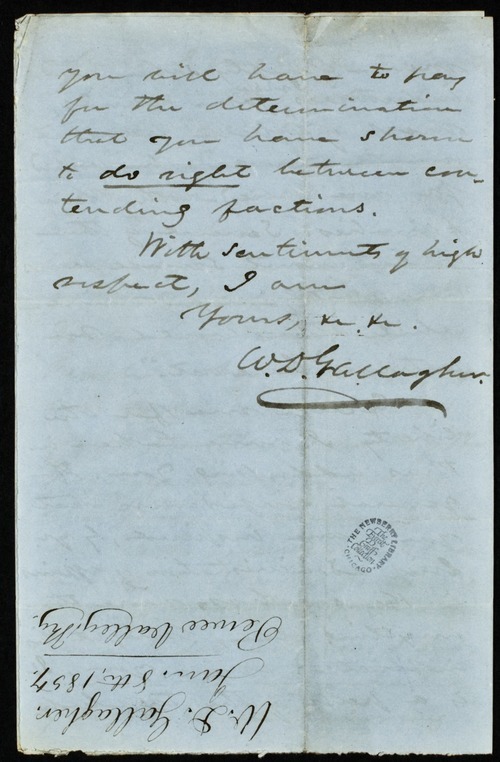 you will have to pay
for the determination
that you have shown
to do right between con-
tending factions.
With sentiments of high
respect, I am
Yours, &c. &c.
W. D. Gallagher.
THE NEWBERRY LIBRARY
CHICAGO
The
Collection
W. D. Gallagher.
Jan. 8th, 1857.
Pewee Valley, Ky.